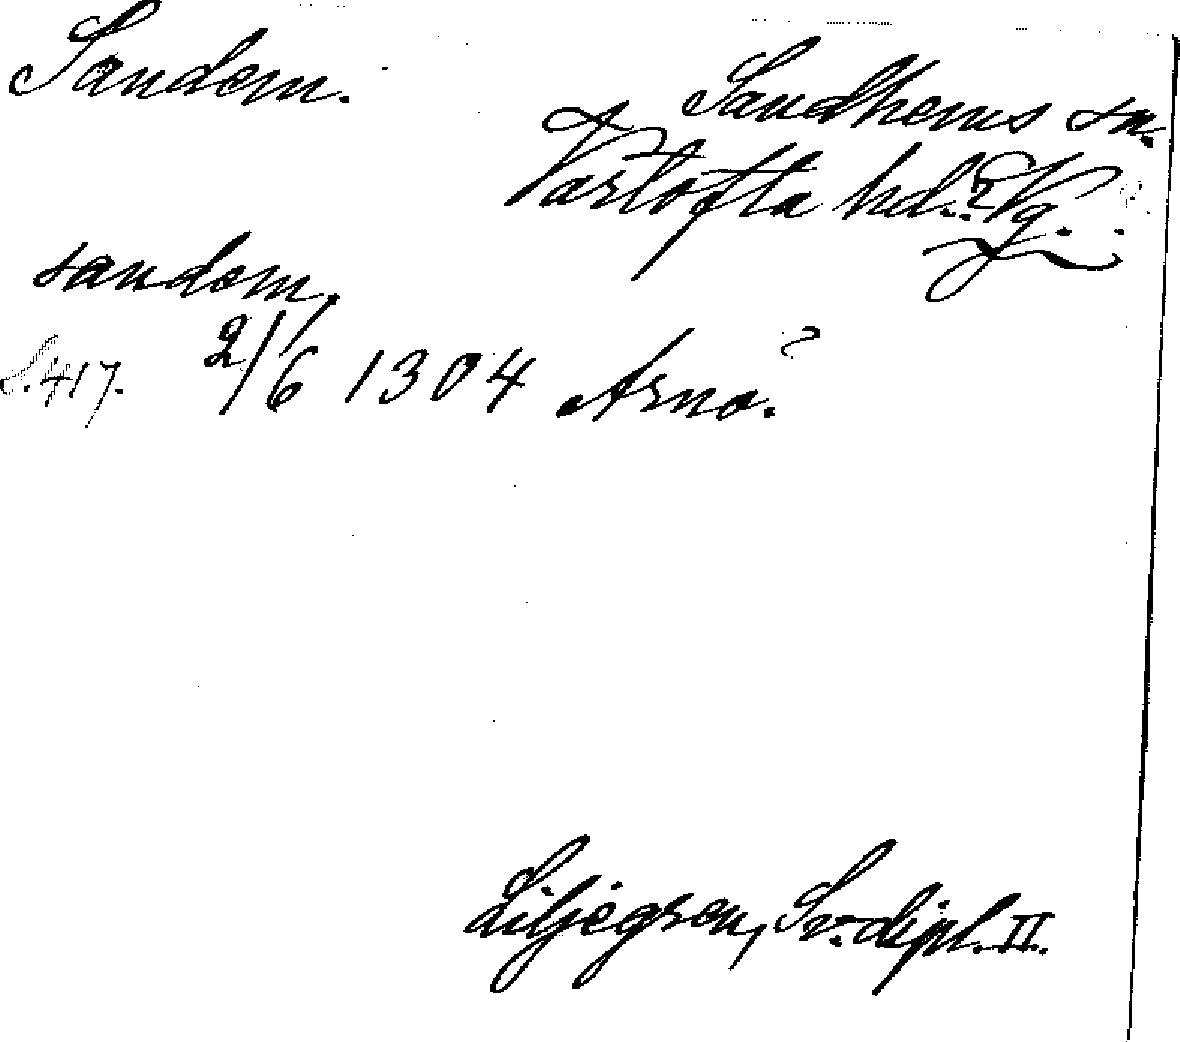 Sandem.
Sandhems sn.
Vartofta hd. Vg.
sandem,
S. 417. 2/6 1304 Arnö?
Liljegren, Sv. dipl. II.